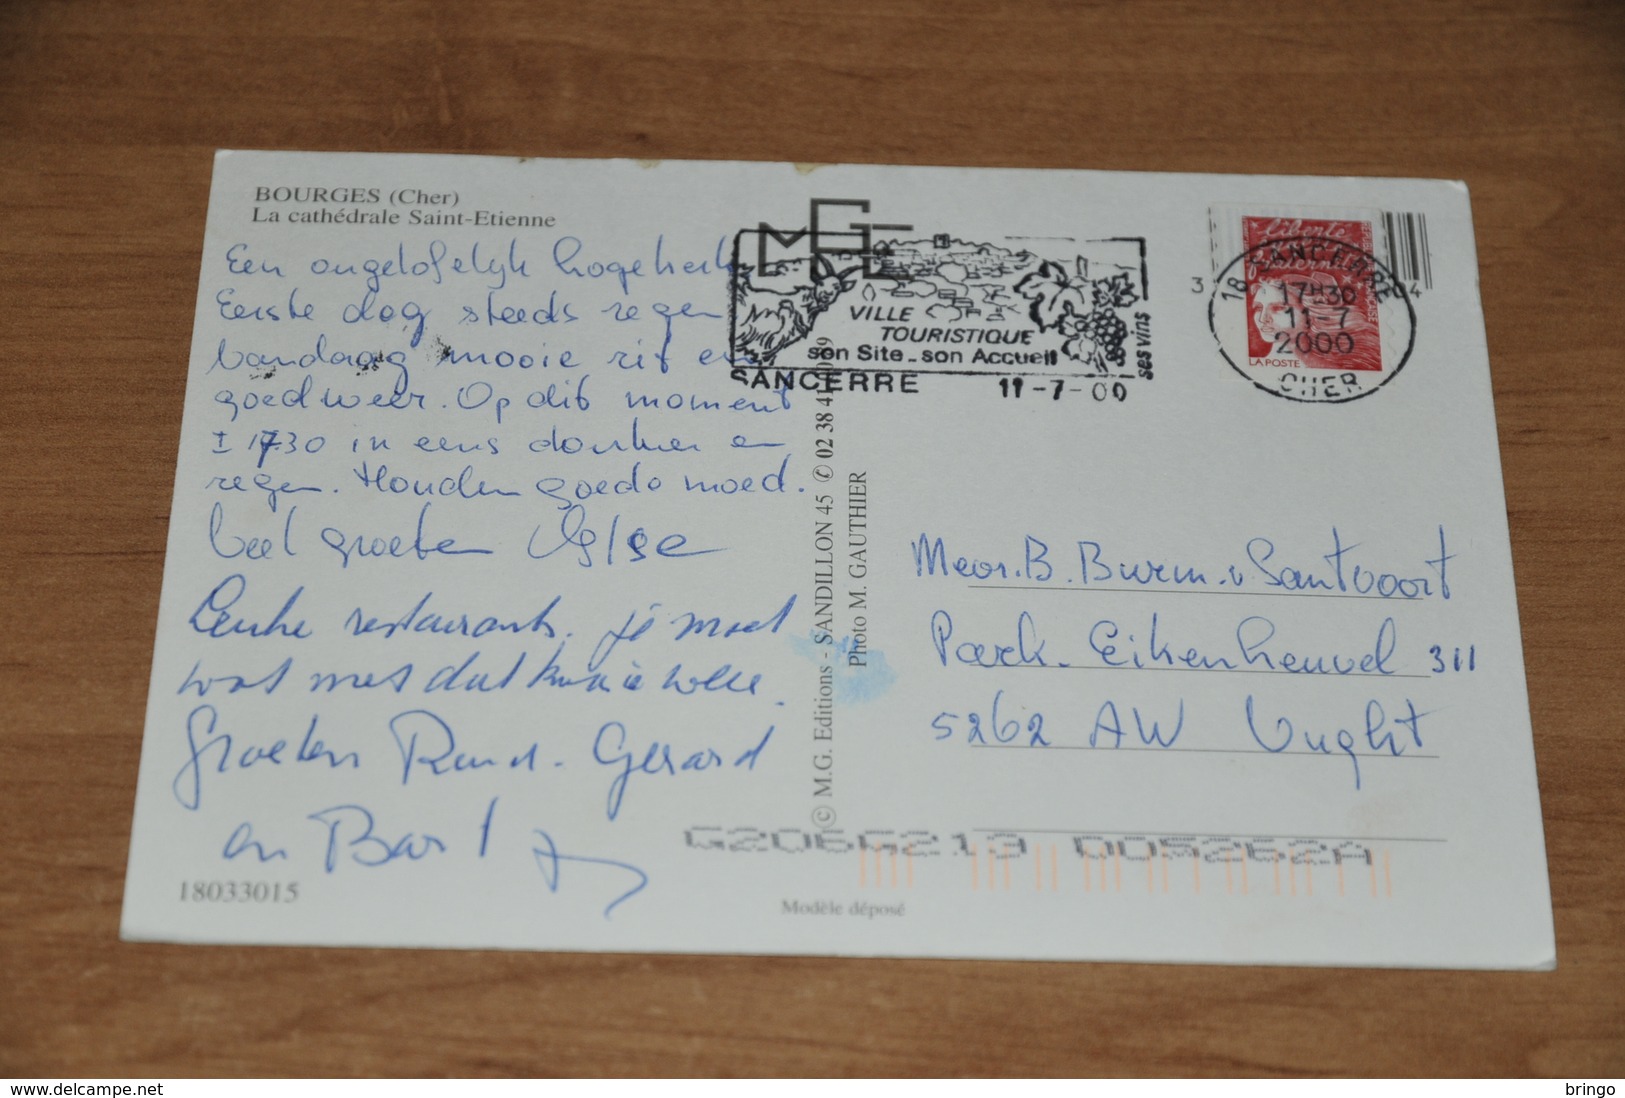 BOURGES (Cher)
La cathédrale Saint-Etienne
Een ongelofelijk hoge kerk.
Eerste dag steeds regen
vandaag mooie rit en
goed weer. Op dit moment
± 1730 in eens donker en
regen. Houden goede moed.
Veel groeten
Leuke restaurants. je moet
wat met dat
Groeten Ruud. Gerard
en Bart
18033015
© M.G. Editions - SANDILLON 45 © 02 38 41
Photo M. GAUTHIER
Modèle déposé
MGE
VILLE
TOURISTIQUE
son Site_son Accueil
ses vins
SANCERRE 11-7-00
3 4
18 SANCERRE
17H30
11-7
2000
CHER
LA POSTE
Mevr. B. Burm. v Santvoort
Park. Eikenheuvel 311
5262 AW Vught
G206G213 005262A
www.delcampe.net
bringo